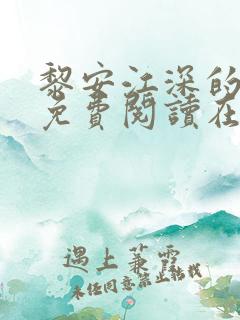 黎安江深的
免費閱讀在
遇上兼雲
未經同意禁止轉載